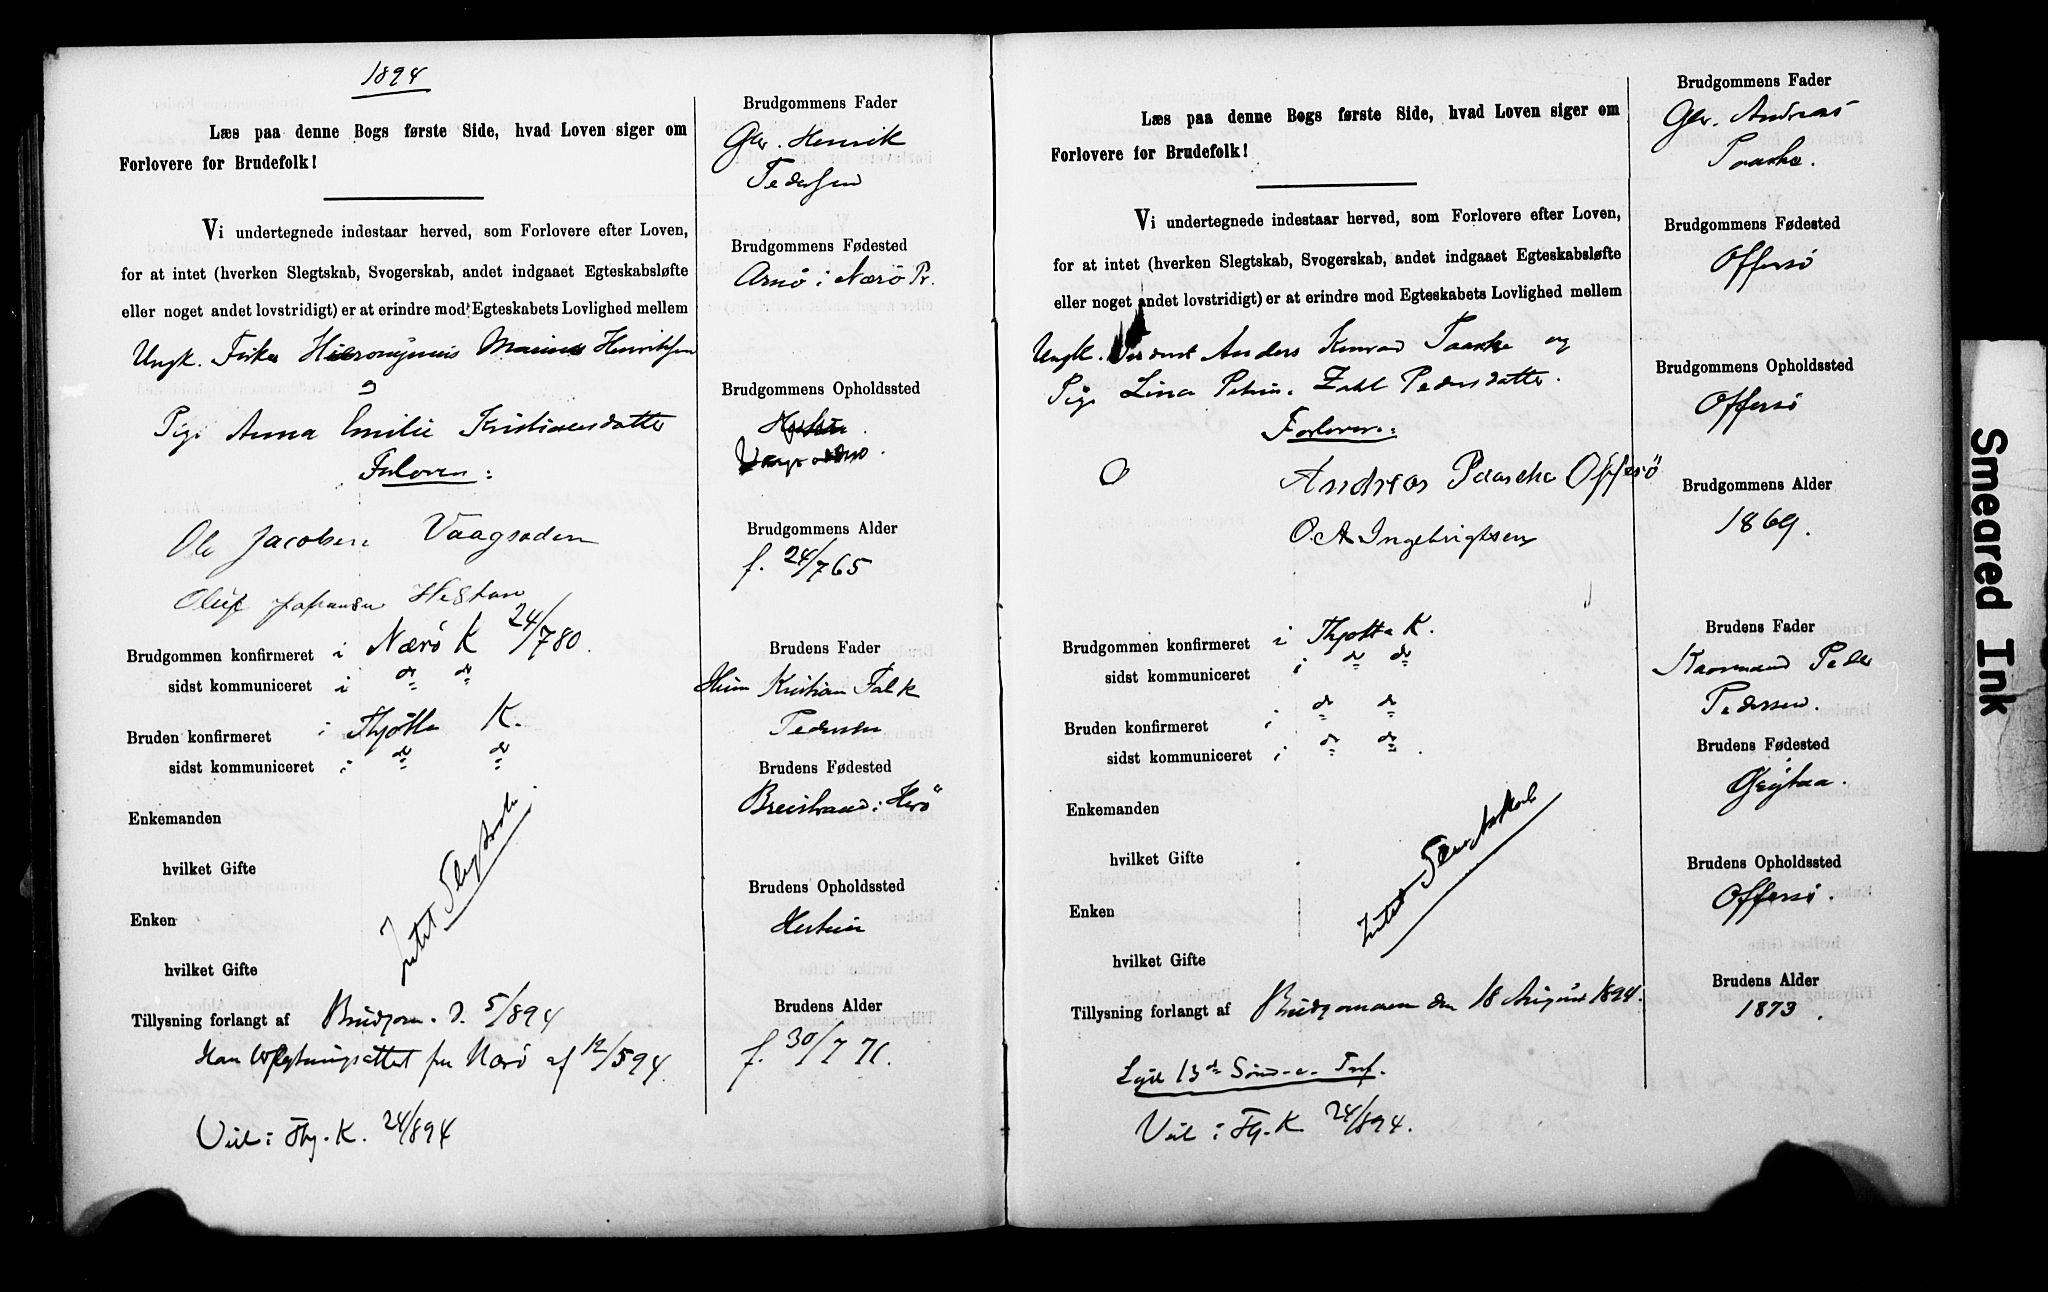 1894
Læs paa denne Bogs første Side, hvad Loven siger om
Forlovere for Brudefolk!
Vi undertegnede indestaar herved, som Forlovere efter Loven,
for at intet (hverken Slegtskab, Svogerskab, andet indgaaet Egteskabsløfte
eller noget andet lovstridigt) er at erindre mod Egteskabets Lovlighed mellem
Ungk. Fisker Hieronymus Marius Henriksen
og
Pige Anna Emilie Kristiansdatter
Forlovere:
Ole Jacobsen Vaagsoden
Oluf Johansen Hestun
Brudgommen konfirmeret i Nærö K 24/780.
sidst kommuniceret i do do
Bruden konfirmeret i Thjøtta K.
sidst kommuniceret i do do
Enkemanden
hvilket Gifte
Enken
hvilket Gifte
Intet Slegtskab.
Tillysning forlangt af Brudgom. d. 5/894
Han Flytningsattest fra Nærö af 12/594.
Viel i Thj. K. 24/894
Brudgommens Fader
Gbr. Henrik
Pedersen
Brudgommens Fødested
Arnö i Nærö Pr.
Brudgommens Opholdssted
Brudgommens Alder
f. 24/765
Brudens Fader
Huusm Kristian Falk
Pedersen
Brudens Fødested
Breistrand i Herö
Brudens Opholdssted
Hestun
Brudens Alder
f. 30/7 71.
Læs paa denne Bogs første Side, hvad Loven siger om
Forlovere for Brudefolk!
Vi undertegnede indestaar herved, som Forlovere efter Loven,
for at intet (hverken Slegtskab, Svogerskab, andet indgaaet Egteskabsløfte
eller noget andet lovstridigt) er at erindre mod Egteskabets Lovlighed mellem
Ungk. Anders Konrad Paaske og
Pige Lina Petrine Zahl Pedersdatter.
Forlovere:
Andreas Paaske Offersö
O. A Ingebrigtsen
Brudgommen konfirmeret i Thjøtta K.
sidst kommuniceret i do do
Bruden konfirmeret i do do
sidst kommuniceret i do do.
Enkemanden
hvilket Gifte
Enken
hvilket Gifte
Intet Slegtskab
Tillysning forlangt af Brudgommen den 18 August 1894.
Lyst 13de Sønd. e. Tref.
Viel i Thj. K 24/894.
Brudgommens Fader
Gbr. Andreas
Paaske.
Brudgommens Fødested
Offersö
Brudgommens Opholdssted
Offersö
Brudgommens Alder
1869.
Brudens Fader
Peder
Pedersen.
Brudens Fødested
Brudens Opholdssted
Offersö.
Brudens Alder
1873.
Smeared Ink